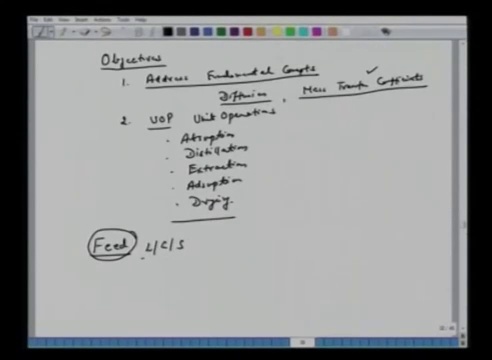 Objectives
1. Address Fundamental Concepts
Diffusion, Mass Transfer Coefficients
2. UOP Unit Operations
. Absorption
. Distillation
. Extraction
. Adsorption
. Drying.
Feed L/G/S